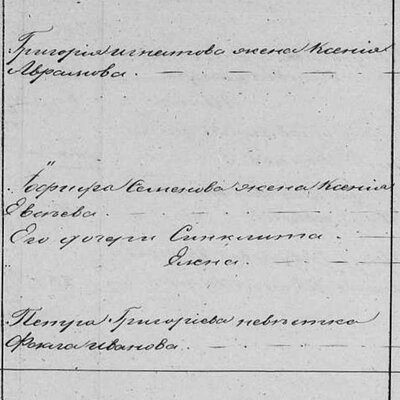 Григорія игнатова жена Ксенія
Авраамова.
Семенова жена Ксенія
Его дочери Синклита
Елена.
Петра Григоріева невѣстка
иванова